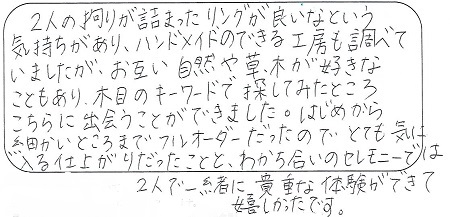 2人の拘りが詰まったリングが良いなという
気持ちがあり、ハンドメイドのできる工房も調べて
いましたが、お互い自然や草、木が好きな
こともあり、木目のキーワードで探してみたところ
こちらに出会うことができました。はじめから
細かいところまでフルオーダーだったのでとても気に
入る仕上がりだったことと、わかち合いのセレモニーでは
2人で一緒に貴重な体験ができて
嬉しかたです。